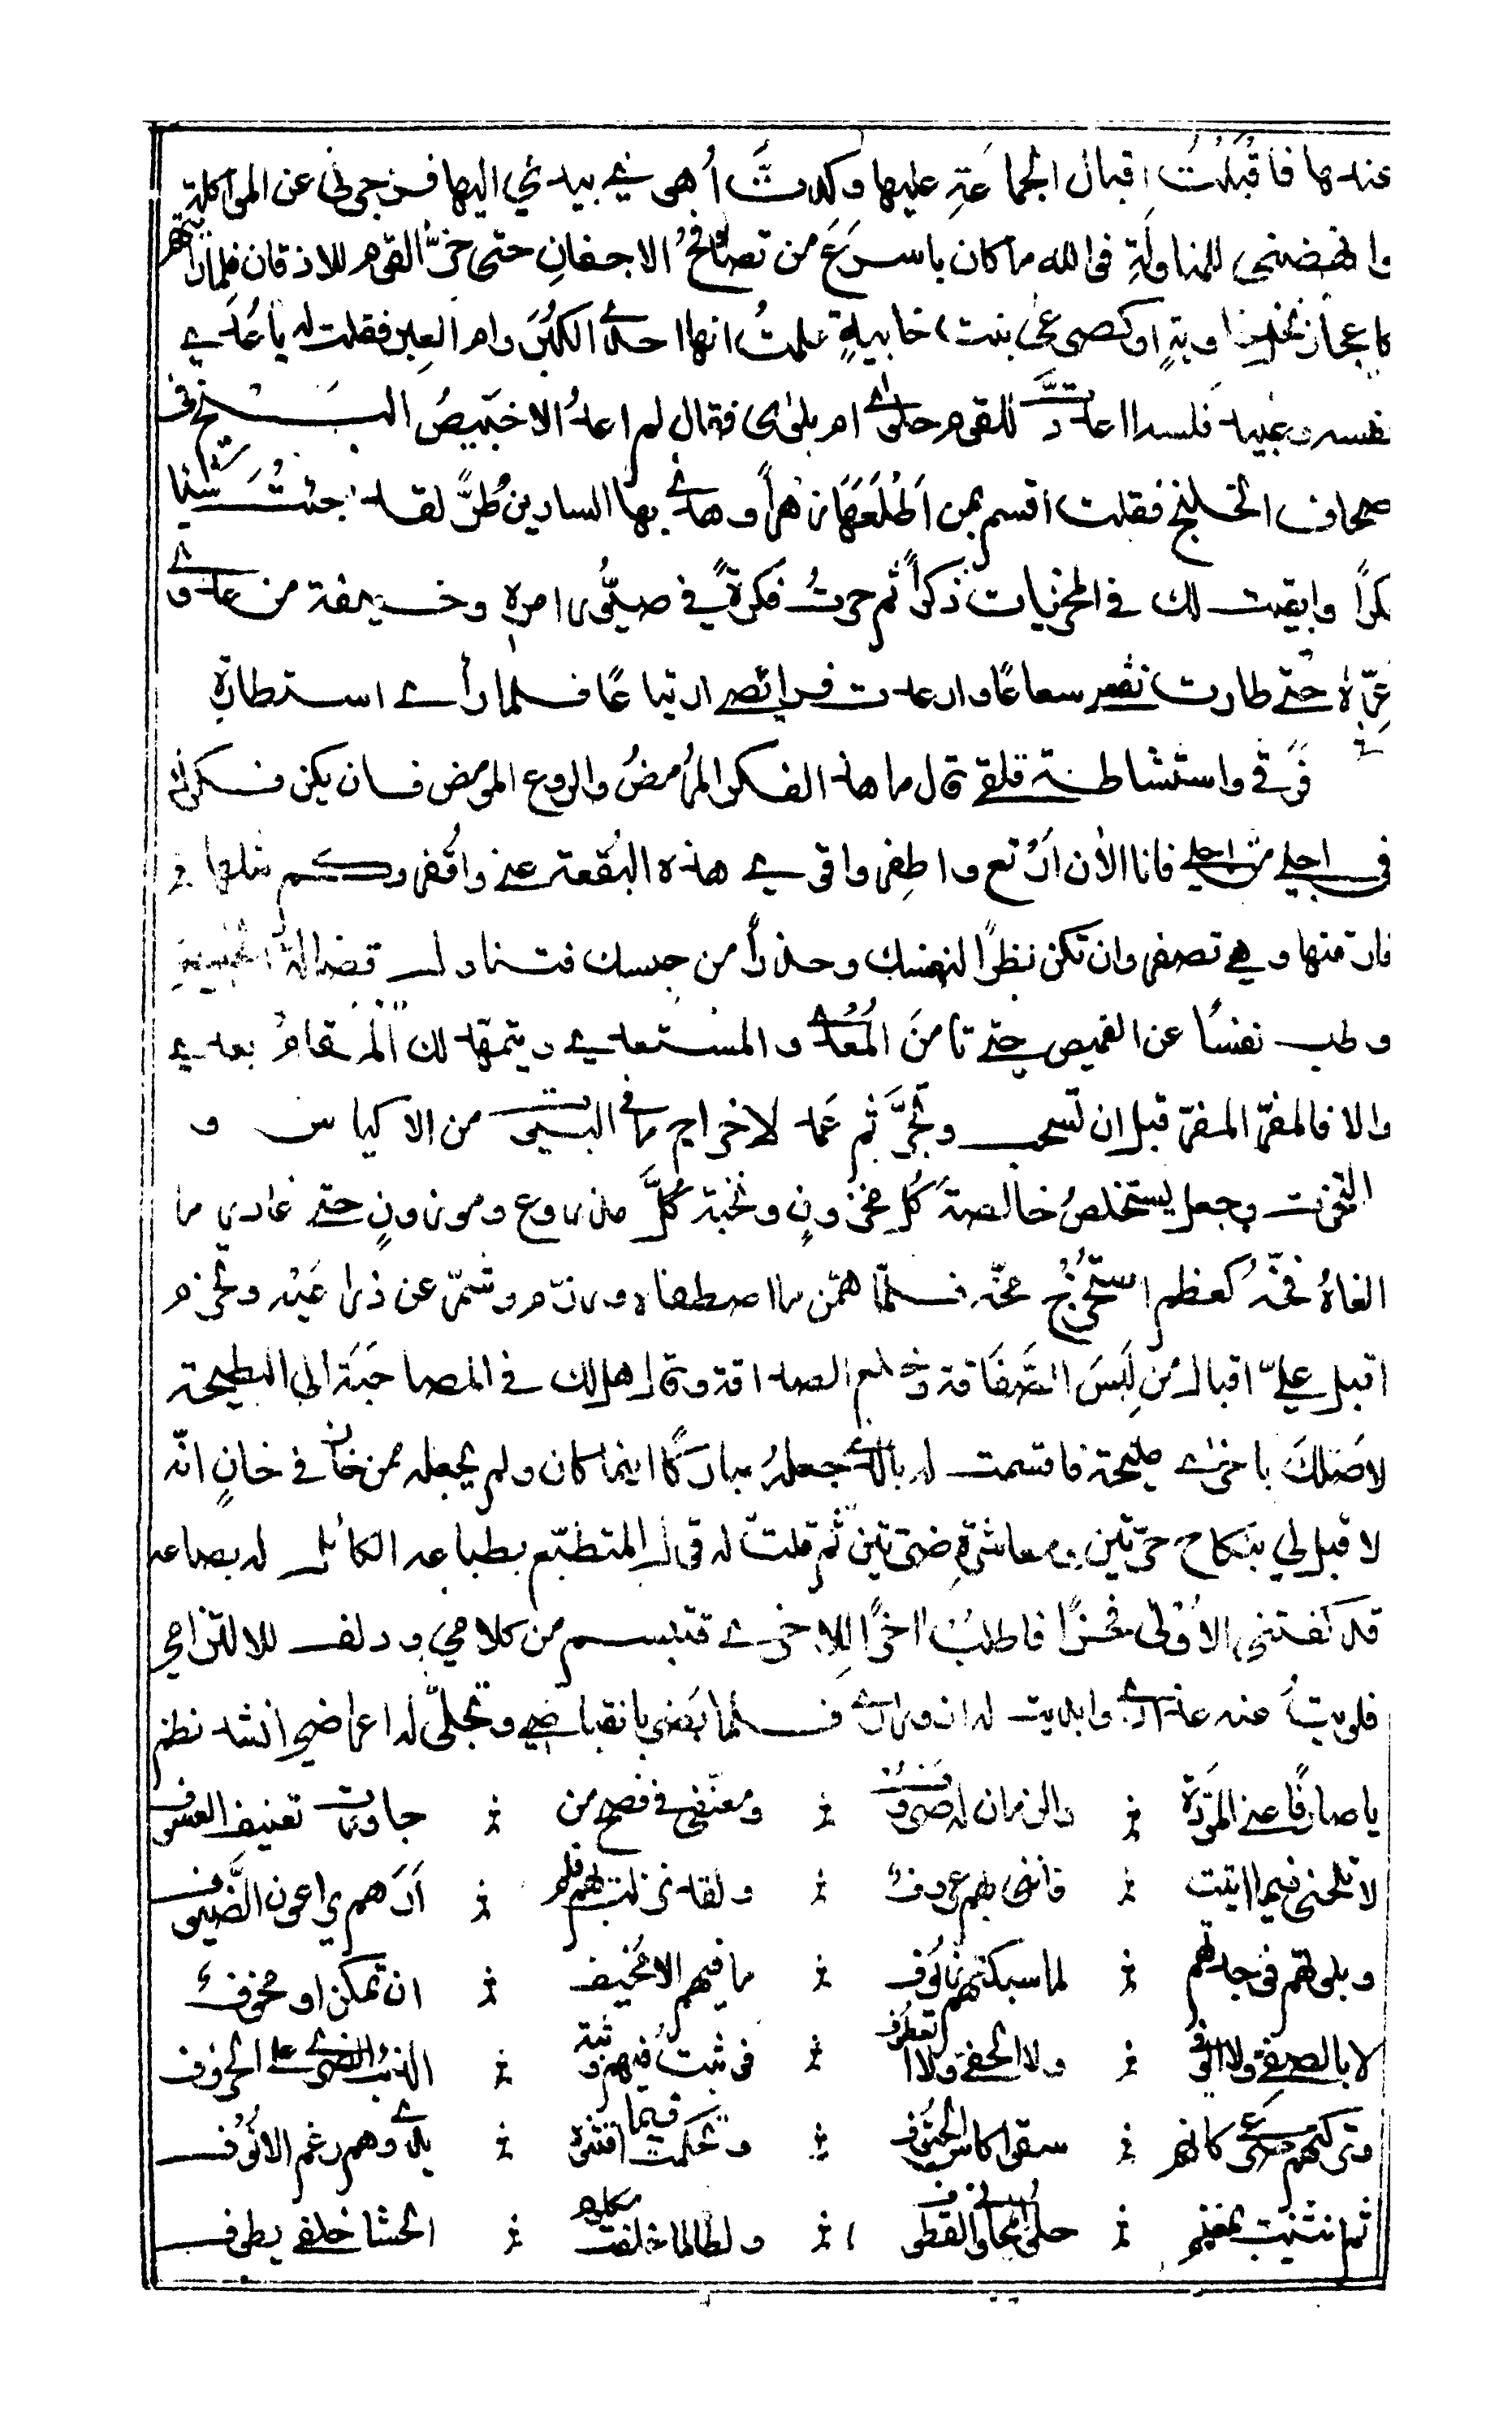 عندها فاقبلت اقبال الجماعة عليها وكدت أهوي بيدي اليها فزجرني عن المواكلة
وانهضني للمناولة فوالله ما كان باسرع من تصافح الاجفان حتى خر القوم للاذقان فلما رايتهم
كاعجاز نخل خاوية او كصرعى بنت خابية علمت انها احدى الكبر وام العبر فقلت له يا عدي
نفسه وعبيد فلسه ااعددت للقوم حلوى ام بلوى فقال لم اعد الا خبيص البنج في
صحاف الخلنج فقلت اقسم بمن اطلعها زهرا وهدى بها السارين طرا لقد جئت شيئا
نكرا وابقيت لك في المخزيات ذكرا ثم حرت فكرة في صيور امره وخيفة من عدوى
عره حتى طارت نفسي شعاعا وارعدت فرائصي ارتياعا فلما رأى استطارة
فرقي واستشاطة قلقي قال ما هذا الفكر المرمض والروع المومض فان يكن فكرك
في اجلي من اجلي فانا الآن ارتع واطفر واقوي هذه البقعة مني واقفر وكم مثلها
فارقتها وهي تصفر وان تكن نظرا لنفسك وحذرا من حبسك فتناول فضالة الخبيص
وطب نفسا عن القميص حتى تامن المعدى والمستعدي ويتمهد لك المقام بعدي
والا فالمفر المفر قبل ان تسحب وتجر ثم عمد لاخراج ما في البيوت من الاكياس و
التخوت وجعل يستخلص خالصة كل مخزون ونخبة كل مذروع وموزون حتى غادر ما
الغاه فخه كعظم استخرج مخه فلما همن ما اصطفاه ورزم وشمر عن ذراعيه وتحزم
اقبل علي اقبال من لبس الصفاقة وخلع الصداقة وقال هل لك في المصاحبة الى البطيحة
لاصلك باخرى مليحة فاقسمت له بالذي جعله مباركا اينما كان ولم يجعله ممن خان في خان انه
لا قبل لي بنكاح حرتين ومعاشرة ضرتين ثم قلت له قول المتطبع بطباعه الكائل له بصاعه
قد كفتني الأولى فخرا فاطلب آخر للاخرى فتبسم من كلامي ودلف لالتزامي
فلويت عنه عذاري وابديت له ازوراري فلما بصر بانقباضي وتجلى له اعراضي انشد نظم
يا صارفا عني المودة ؞ والزمان له صروف ؞ ومعنفي في فضح من ؞ جاورت تعنيف العسوف
لا تلحني فيما اتيت ؞ فانني بهم عروف ؞ ولقد نزلت بهم فلم ؞ ارهم يراعون الضيوف
وبلوتهم فوجدتهم ؞ لما سبكتهم زيوف ؞ ما فيهم الا مخيف ؞ ان تمكن او مخوف
لا بالصفي ولا الوفي ؞ ولا الحفي ولا العطوف ؞ فوثبت فيهم وثبة ؞ الذئب الضري على الخروف
وتركتهم صرعى كانهم ؞ سقوا كاس الحتوف ؞ وتحكمت فيما اقتنوه ؞ يدي وهم رغم الانوف
ثم انثنيت بمغنم ؞ حلو المجاني والقطوف ؞ ولطالما خلفت مكلوم ؞ الحشا خلفي يطوف